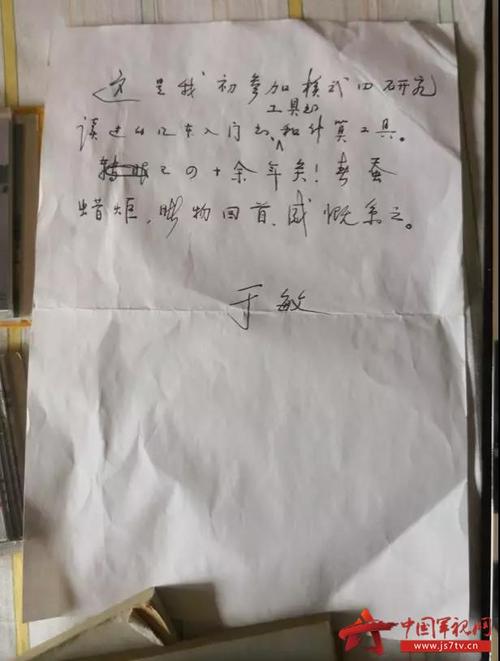 这是我初参加模式 研究
工具
读过 几本入门的和计算工具。
转眼已四十余年矣！春蚕
蜡炬，睹物回首，感慨系之。
于敏
中国军视网
www.js7tv.cn